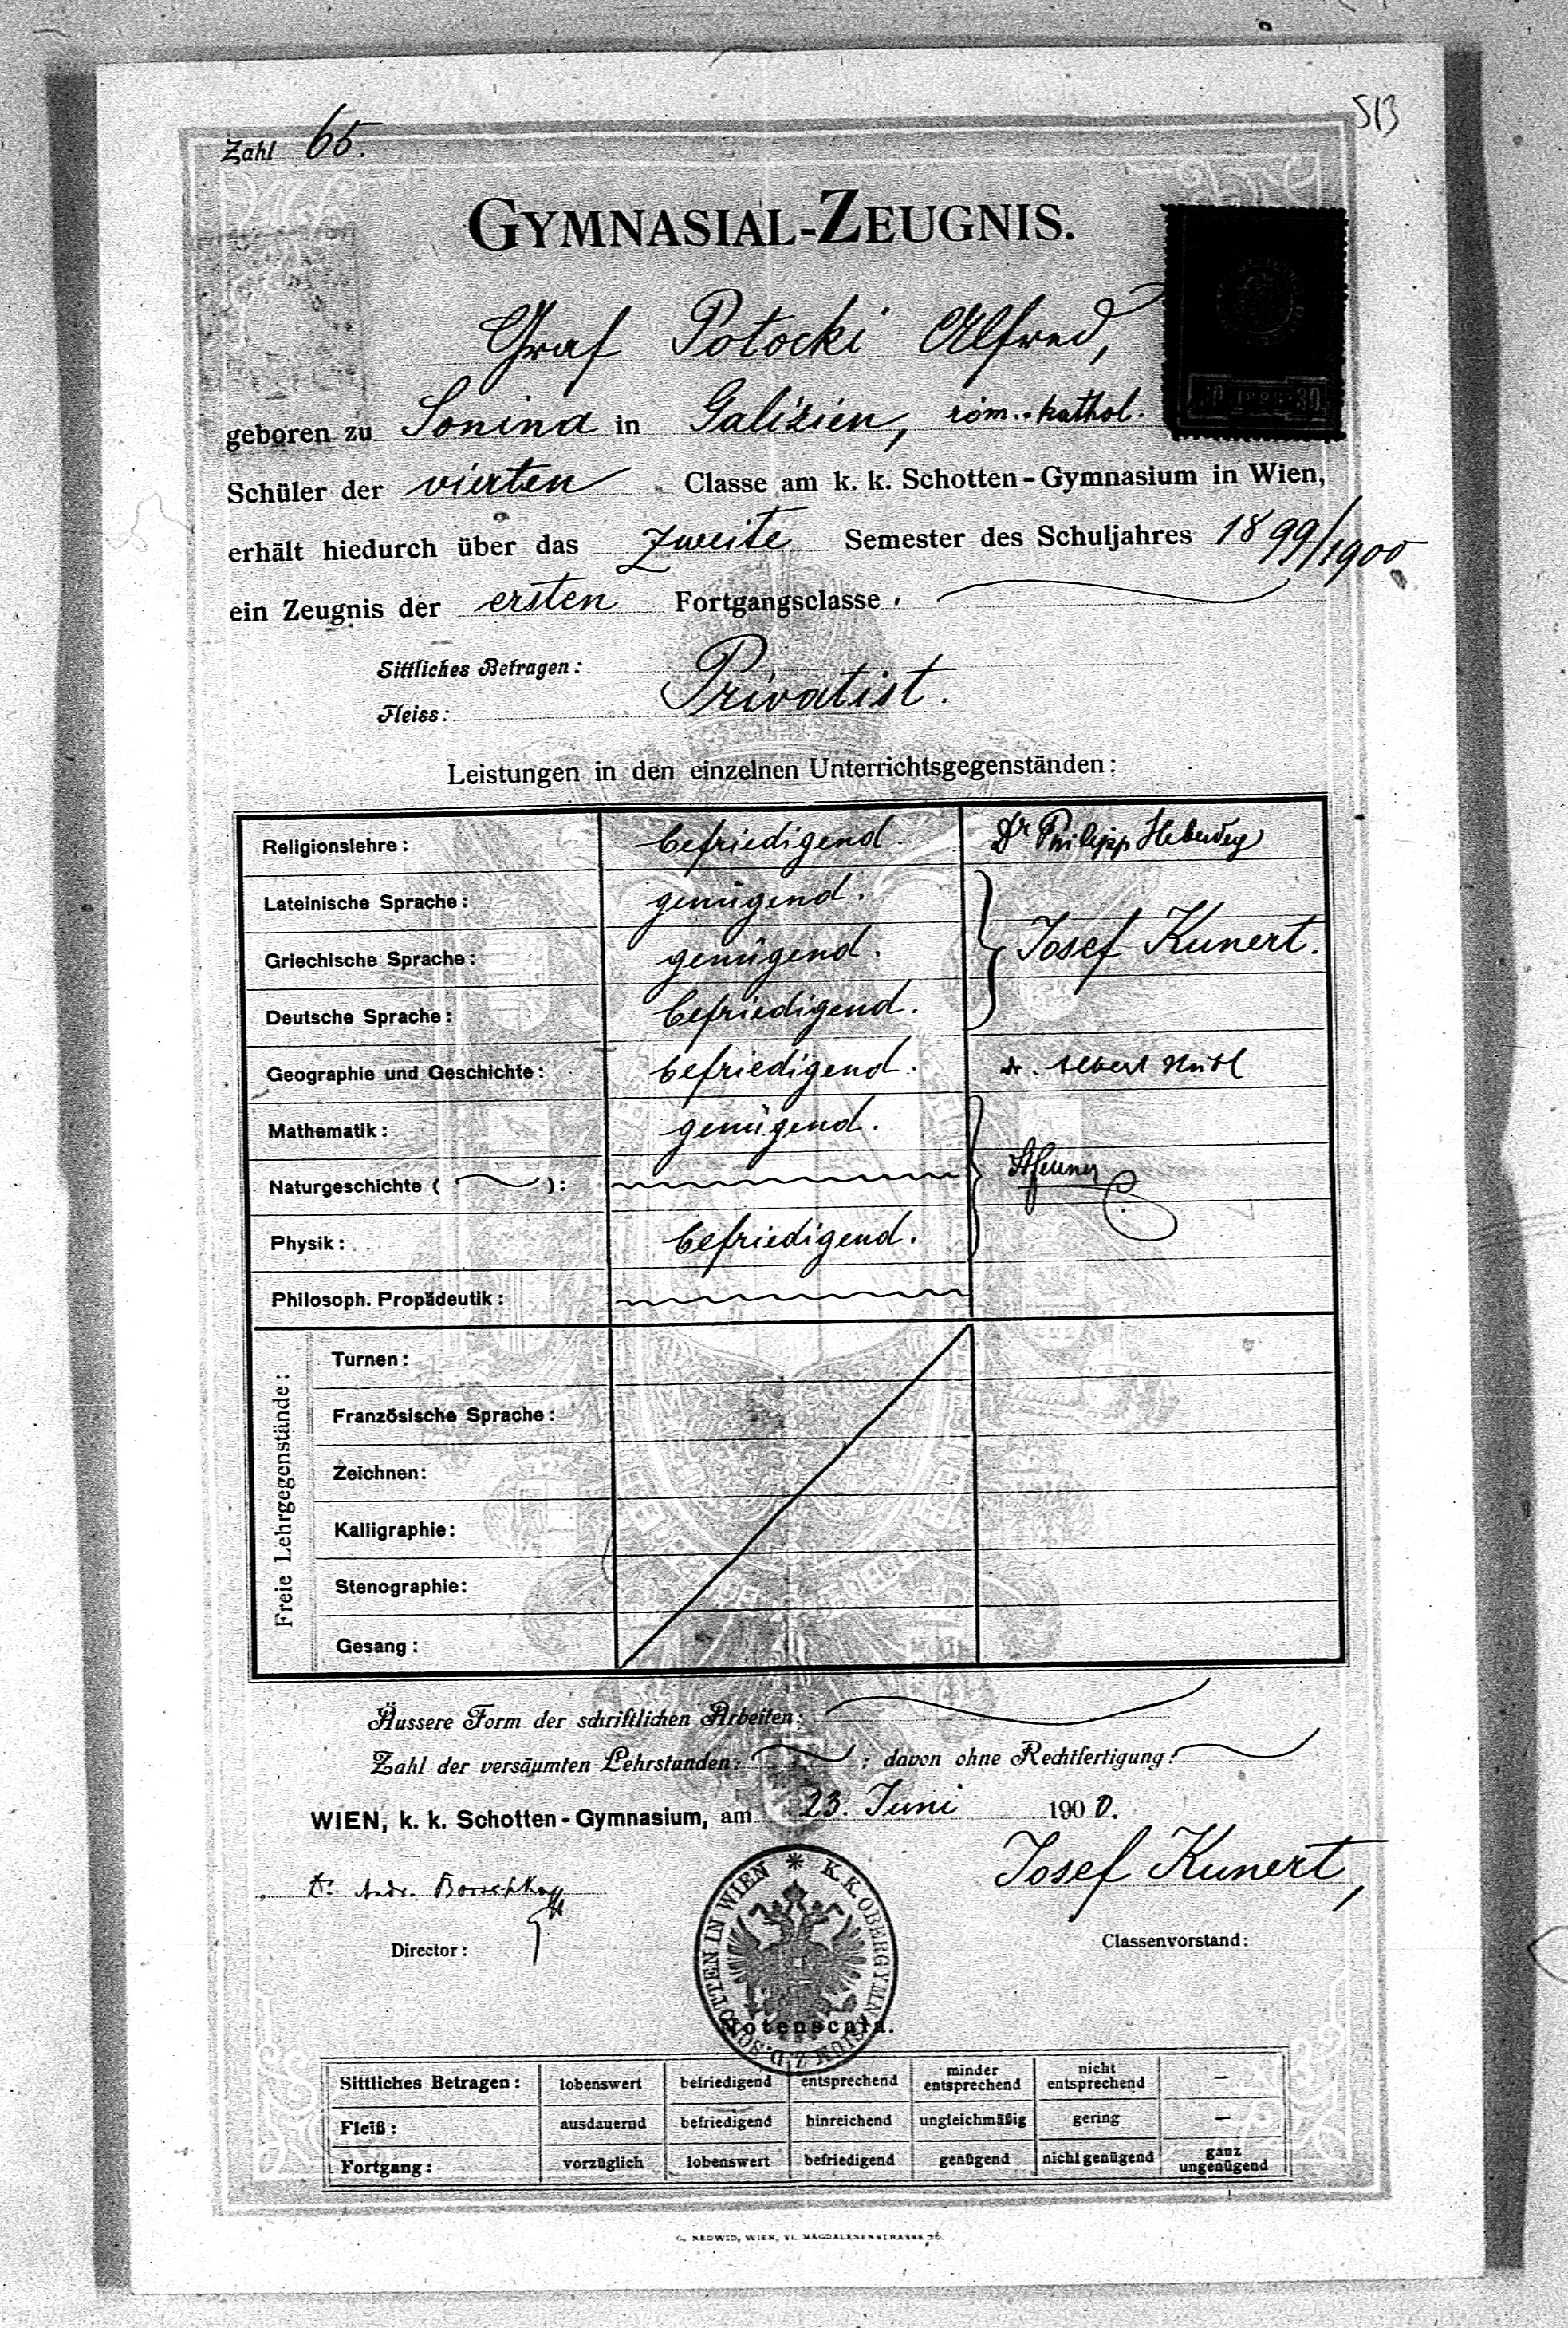 513
Zahl 65.
GYMNASIAL-ZEUGNIS.
Graf Potocki Alfred,
geboren zu Sonina in Galizien, röm.-kathol.
Schüler der vierten Classe am k. k. Schotten-Gymnasium in Wien,
erhält hiedurch über das zweite Semester des Schuljahres 1899/1900
ein Zeugnis der ersten Fortgangsclasse.
Sittliches Betragen:
Privatist.
Fleiss:
Leistungen in den einzelnen Unterrichtsgegenständen:
Religionslehre: befriedigend. Dr Philipp
Lateinische Sprache: genügend.
Griechische Sprache: genügend. Josef Kunert.
Deutsche Sprache: befriedigend.
Geographie und Geschichte: befriedigend. Dr. Albert Hübl
Mathematik: genügend.
Naturgeschichte ( ):
Physik: befriedigend.
Philosoph. Propädeutik:
Freie Lehrgegenstände:
Turnen:
Französische Sprache:
Zeichnen:
Kalligraphie:
Stenographie:
Gesang:
Äussere Form der schriftlichen Arbeiten:
Zahl der versäumten Lehrstunden: ; davon ohne Rechtfertigung:
WIEN, k. k. Schotten-Gymnasium, am 23. Juni 1900.
Dr. Andr. Borschke Josef Kunert,
Director: Classenvorstand:
K. K. OBERGYMNASIUM Z. D. SCHOTTEN IN WIEN
Notenscala.
Sittliches Betragen: lobenswert befriedigend entsprechend minder entsprechend nicht entsprechend —
Fleiß: ausdauernd befriedigend hinreichend ungleichmäßig gering —
Fortgang: vorzüglich lobenswert befriedigend genügend nicht genügend ganz ungenügend
G. NEDWID, WIEN, VI. MAGDALENENSTRASSE 26.